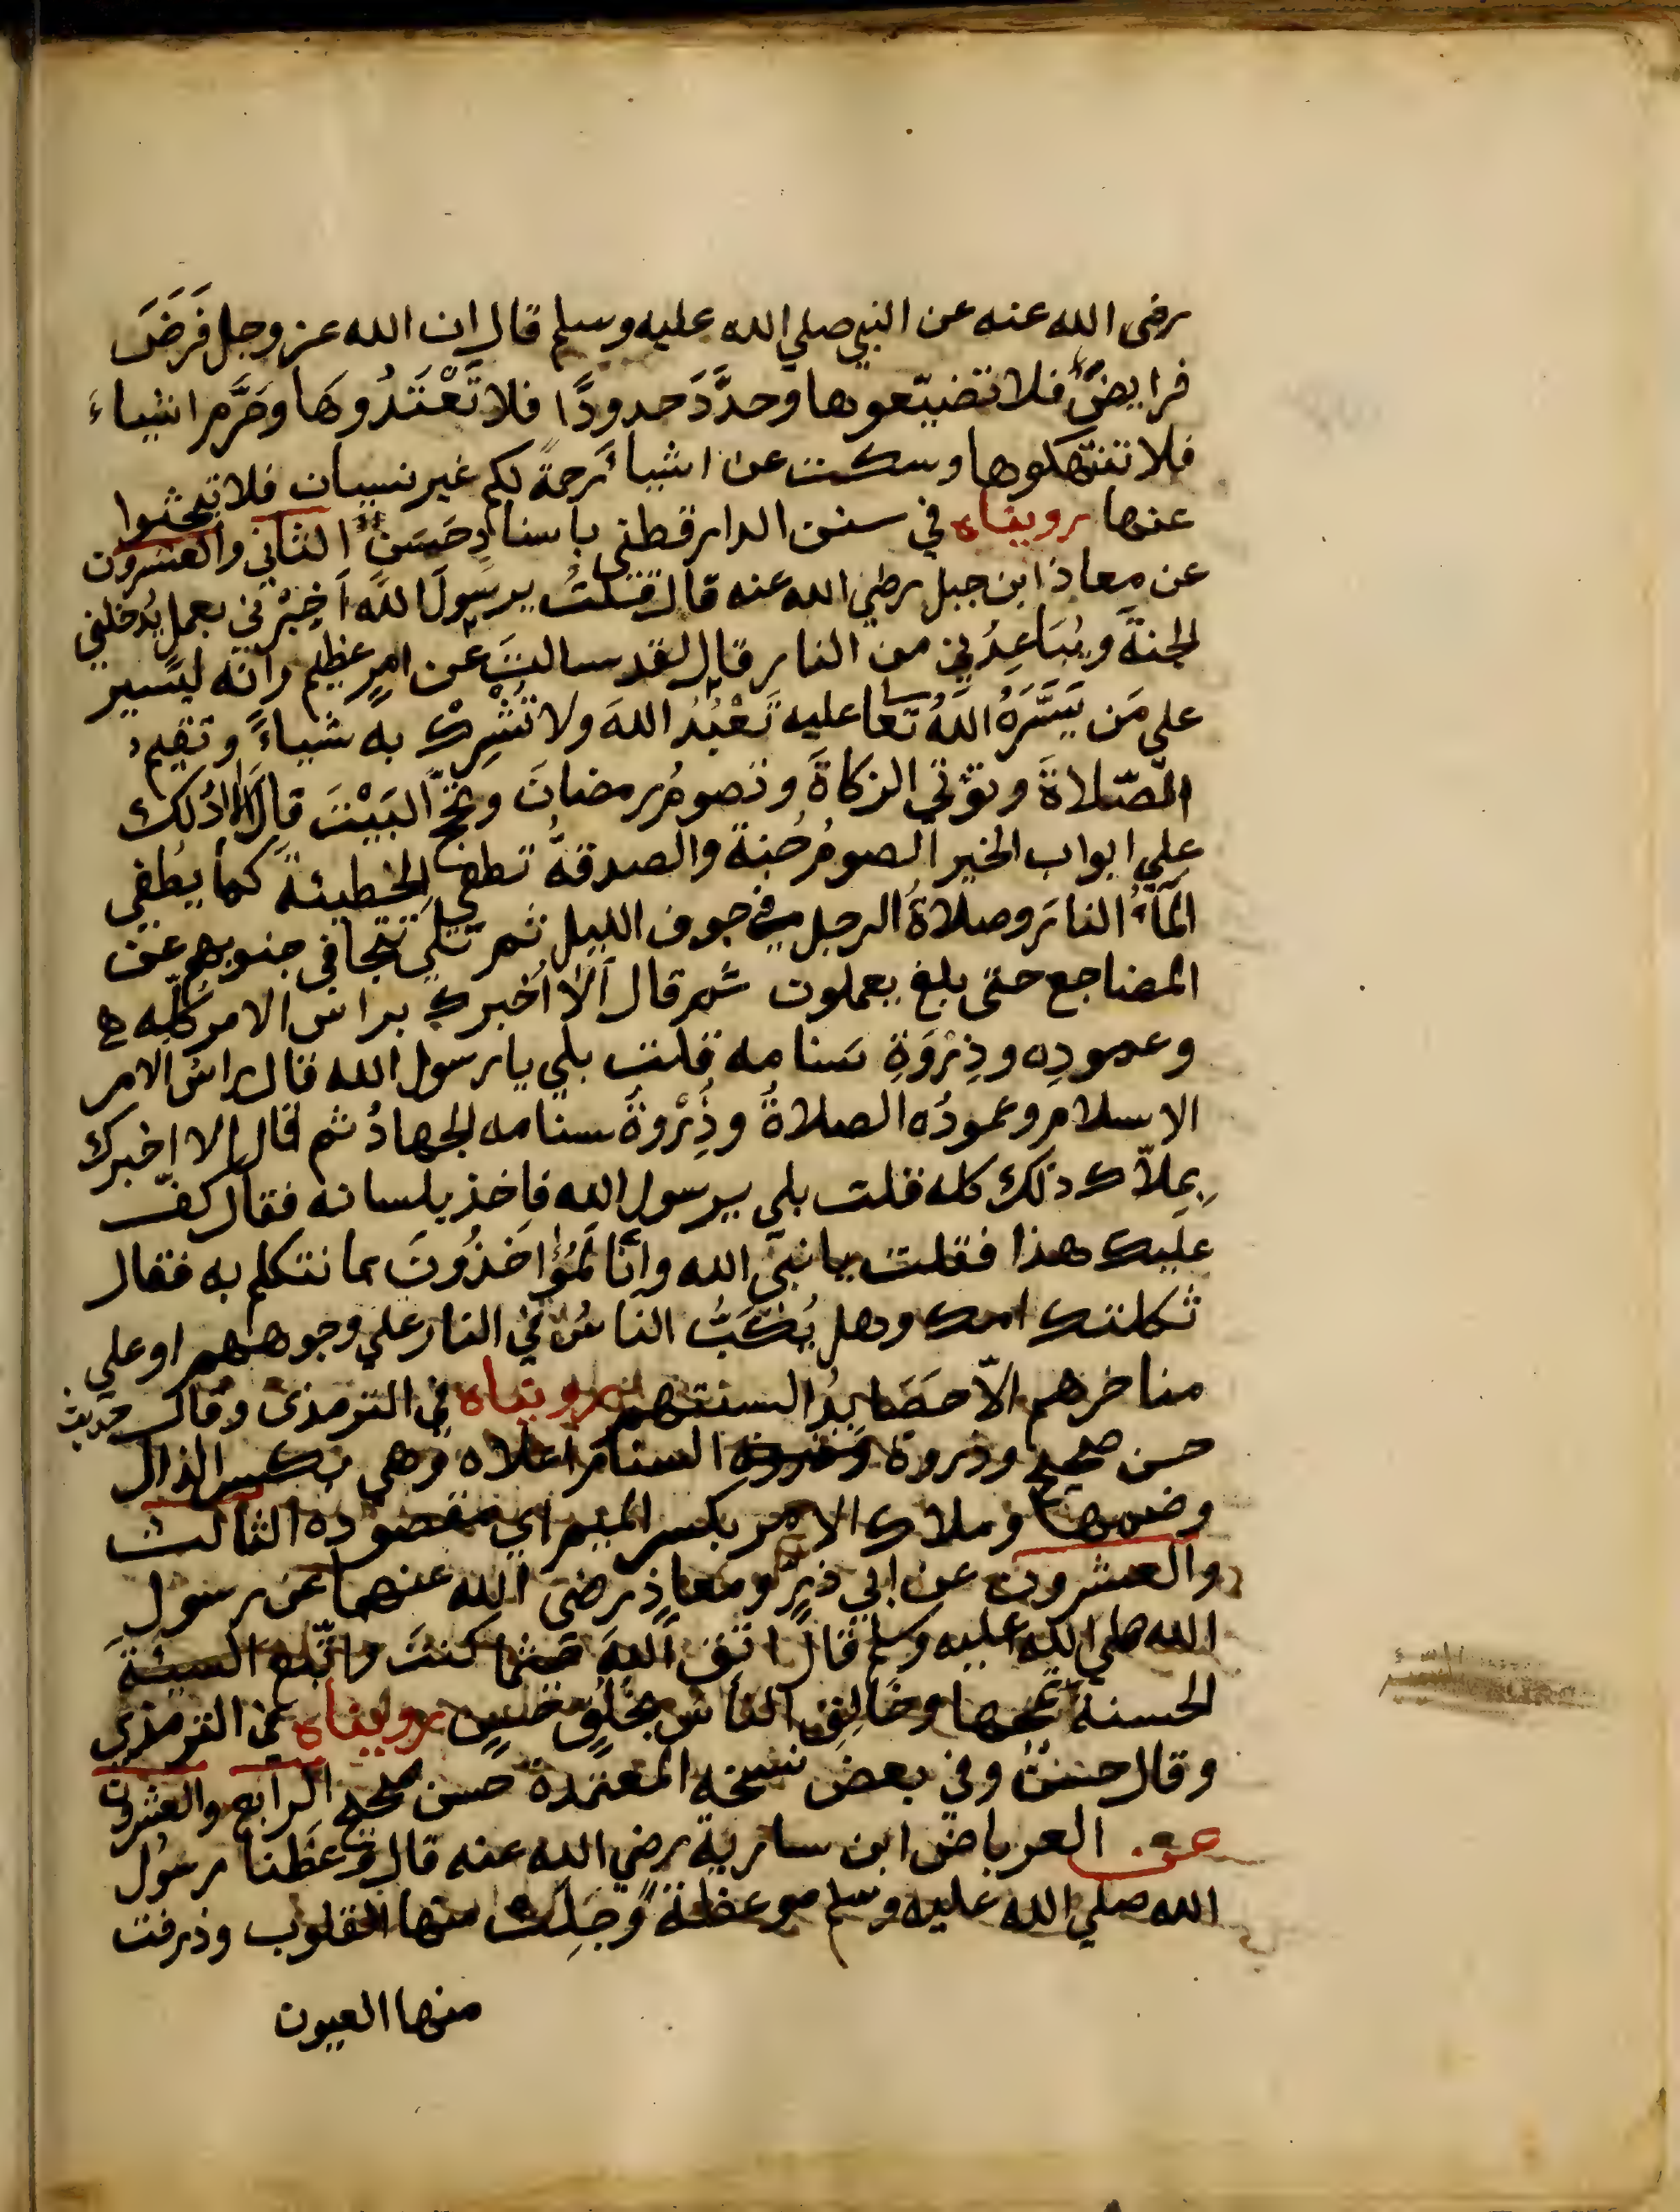 رضى الله عنه عن النبي صلي الله عليه وسلم قال ان الله عز وجل فَرَضَ
فرايضَ فلا تضيّعوها وحدَّدَ حدودًا فلا تَعْتَدُوهَا وحَرَّم اشياءَ
فلا تنتهكوها وسكت عن اشياءَ رحمةً لكم غير نسيان فلا تبحثوا
عنها رويناه في سنن الدارقطني باسنادٍ حَسَنٍ الثاني والعشرون
عن معاذ ابن جبل رضي الله عنه قال قلتُ يرسَولَ اللهِ اَخبِرْني بعملٍ يُدخلني
الجنةَ ويُبَاعِدُني من النار قال لقد سالتَ عن امرٍ عظيم وانه ليَسير
علي مَن يَسَّرَهُ اللهُ تعا عليه تَعْبُدُ اللهَ ولا تُشْرِكْ به شياءً وتقيم
الصّلاةَ وتؤتي الزكاةَ وتصومُ رمضانَ وتحجّ البَيْتَ قال الا ادُلك
علي ابواب الخير الصومُ جُنة والصدقةُ تطفي الخطيئة كما يُطفي
المآءُ النارَ وصلاةُ الرجل في جوف الليل ثم تلي تتجافى جنوبهم عن
المضاجع حتى بلغ يعملون ثم قال اَلا اُخبرك براس الامر كلِّه
وعمودِه وذِرْوَةِ سَنامه قلت بلي يا رسول الله قال راس الامر
الاسلام وعمودُه الصلاةُ وذِرْوةُ سنامه الجهادُ ثم قال الا اخبرك
بِمِلاك ذلك كله قلت بلي يرسول الله فاخذ بلسانه فقال كفّ
عليك هذا فقلت يا نبيّ الله وانَّا لَمُؤاخَذُونَ بما نتكلم به فقال
ثكلتك امك وهل يُكَبُّ الناسُ في النار علي وجوههم او على
مناخرهم الاّ حَصَايدُ السنتهم رويناه في الترمذى وقال حديث
حسن صحيح وذروة السنام اعلاه وهي بكسر الذال
وضمها وملاك الامر بكسر الميم اي مقصوده الثالث
والعشرون عن ابي ذرٍ ومعاذٍ رضى الله عنهما عن رسولِ
الله صلي الله عليه وسلم قال اتق اللهَ حيثما كنتَ واتبع السيئةَ
الحسنةَ تمحها وخالِقِ الناس بخُلُقٍ حسنٍ رويناه في الترمذي
وقال حسنٌ وفي بعض نسخه المعتمدة حسن صحيح الرابع والعشرون
عن العرباض ابن سارية رضي الله عنه قال وَعَظَنا رسُول
الله صلي الله عليه وسلم موعظةً وَجِلَت منها القلوب وذرفت
منها العيون